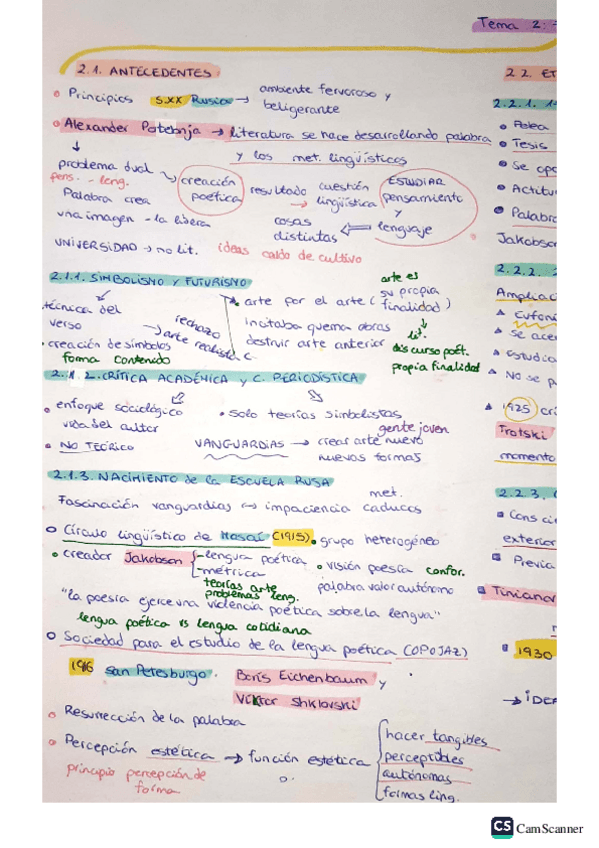 Tema 2:
2.1. ANTECEDENTES
Principios S.XX Rusia → ambiente fervoroso y
beligerante
Alexander Potebnja → literatura se hace desarrollando palabra
y los met. lingüísticos
problema dual
pens. - leng.
Palabra crea
una imagen - la libera
creación
poética
resultado cuestión
→ lingüística
ESTUDIAR
pensamiento
y
lenguaje
cosas
distintas
UNIVERSIDAD → no lit. ideas caldo de cultivo
2.1.1. SIMBOLISMO y FUTURISMO
técnica del
verso
creación de símbolos
forma contenido
rechazo
→ arte realista
arte por el arte (
arte es
su propia
finalidad)
incitaba quema obras
destruir arte anterior
lit.
discurso poét.
propia finalidad
2.1.2. CRÍTICA ACADÉMICA y C. PERIODÍSTICA
enfoque sociológico
vida del autor
NO TEÓRICO
solo teorías simbolistas
gente joven
VANGUARDIAS → crear arte nuevo
nuevas formas
2.1.3. NACIMIENTO de la ESCUELA RUSA
Fascinación vanguardias ↔ impaciencia met. caducos
Círculo lingüístico de Moscú (1915) grupo heterogéneo
creador Jakobson
- lengua poética
- métrica
teorías arte
problemas leng.
visión poesía confor.
palabra valor autónomo
"la poesía ejerce una violencia poética sobre la lengua"
lengua poética vs lengua cotidiana
Sociedad para el estudio de la lengua poética (OPOJAZ)
1916 San Petesburgo. Boris Eichenbaum y
Viktor Shklovski
Resurrección de la palabra
Percepción estética → función estética
principio percepción de
forma
hacer tangibles
perceptibles
autónomas
formas ling.
2.2. ET
2.2.1. 1
Pelea
Tesis
Se opo
Actitu
Palabra
Jakobson
2.2.2.
Ampliac
Eufoni
Se ace
Estudia
No se p
1925 cri
Trotski
momento
2.2.3.
Cons ci
exterior
Previa
Tinianov
1930
→ IDEA
CS CamScanner